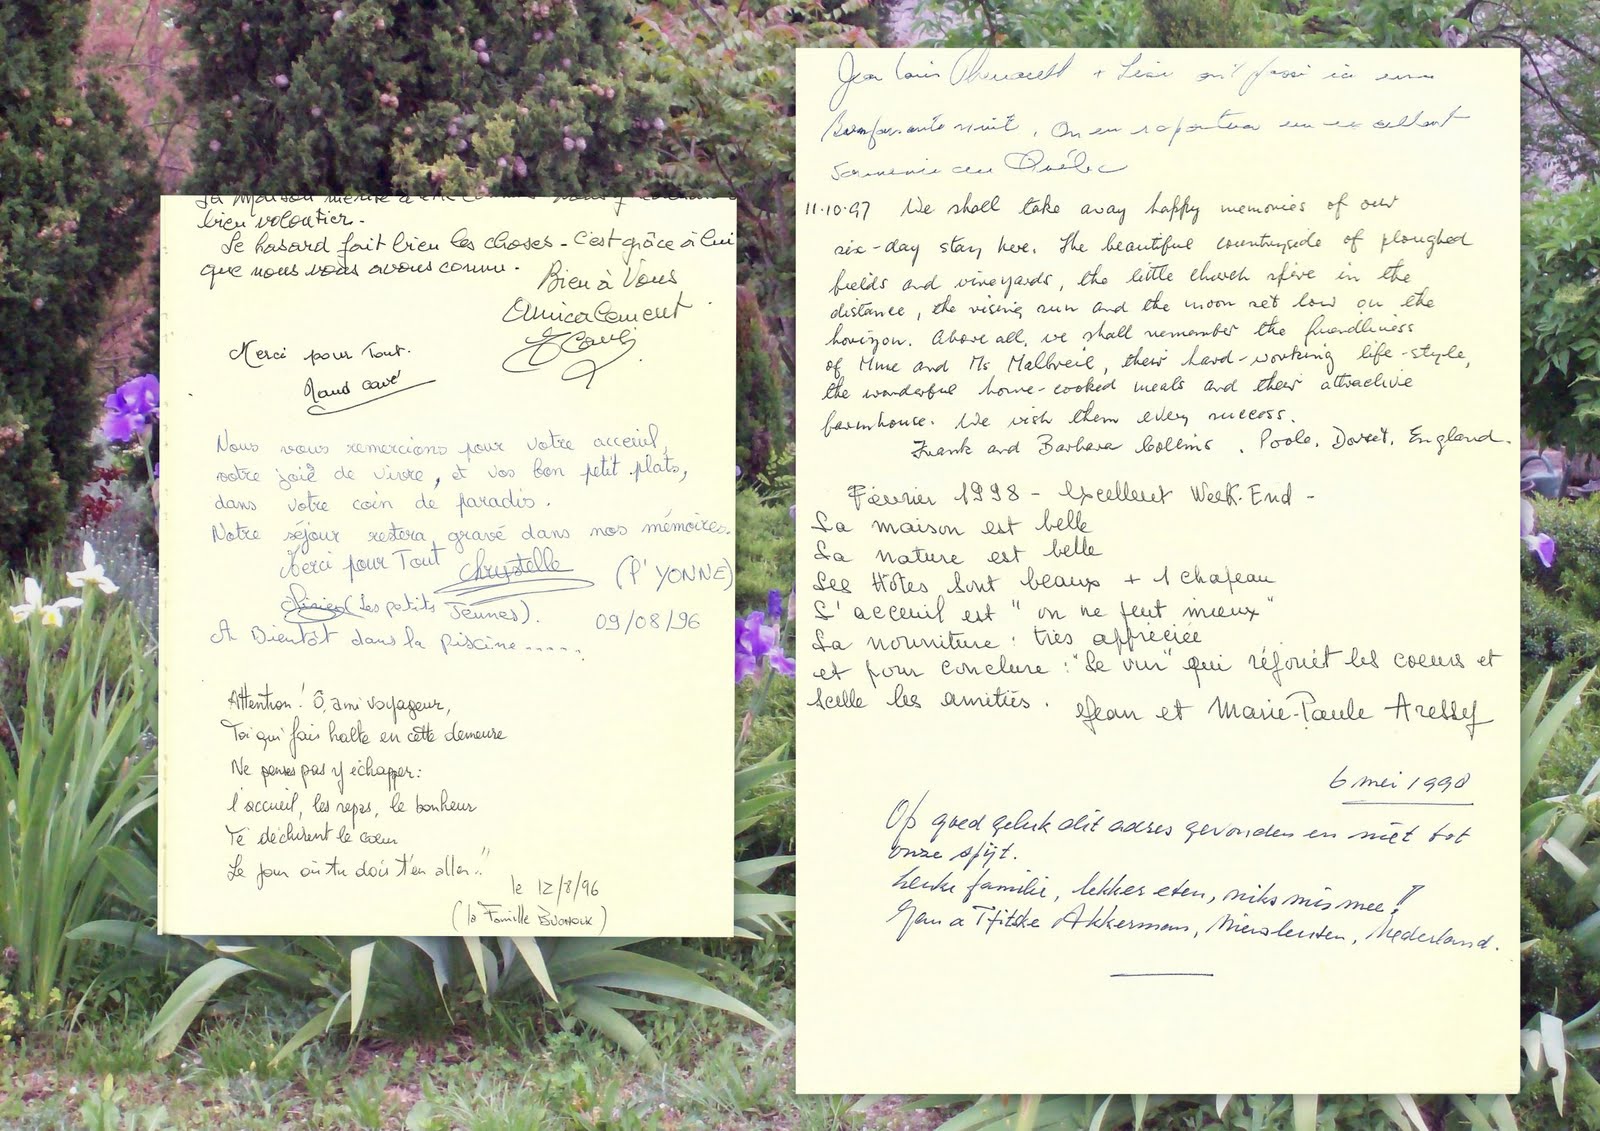 La maison mérite d'être
bien volontier.
Le hasard fait bien les choses - C'est grâce à lui
que nous vous avons connu.
Bien à Vous
Merci pour Tout.
Maud cavé
Nous vous remercions pour votre acceuil,
votre joie de vivre, et vos bon petit plats,
dans votre coin de paradis.
Notre séjour restera gravé dans nos mémoires.
Merci pour Tout Chrystelle (l'YONNE)
(Les petits Jeunes). 09/08/96
A Bientôt dans la Piscine.....
Attention! Ô, ami voyageur,
Toi qui fais halte en cette demeure
Ne penses pas y échapper:
l'accueil, les repas, le bonheur
Te déchirent le coeur
Le jour où tu dois t'en aller..!!
le 12/8/96
(la Famille
Jean Louis + Lise ont passé ici une
Bienfaisante nuit. On en rapportera un excellent
souvenir au Québec
11.10.97 We shall take away happy memories of our
six-day stay here. The beautiful countryside of ploughed
fields and vineyards, the little church spire in the
distance, the rising sun and the moon set low on the
horizon. Above all, we shall remember the friendliness
of Mme and Mr Malbreil, their hard-working life-style,
the wonderful home-cooked meals and their attractive
farmhouse. We wish them every success.
Frank and Barbara Collins. Poole. Dorset. England.
Février 1998 - Excellent Week-End -
La maison est belle
La nature est belle
Les Hôtes sont beaux + 1 chapeau
L'acceuil est "on ne peut mieux"
La nourriture : très appréciée
et pour conclure : "Le vin" qui réjouit les coeurs et
scelle les amitiés. Jean et Marie-Paule Aressy
6 mei 1998
Op goed geluk dit adres gevonden en niet tot
onze spijt.
Leuke familie, lekker eten, niks mis mee!
Tjitske Akkerman, Nederland.